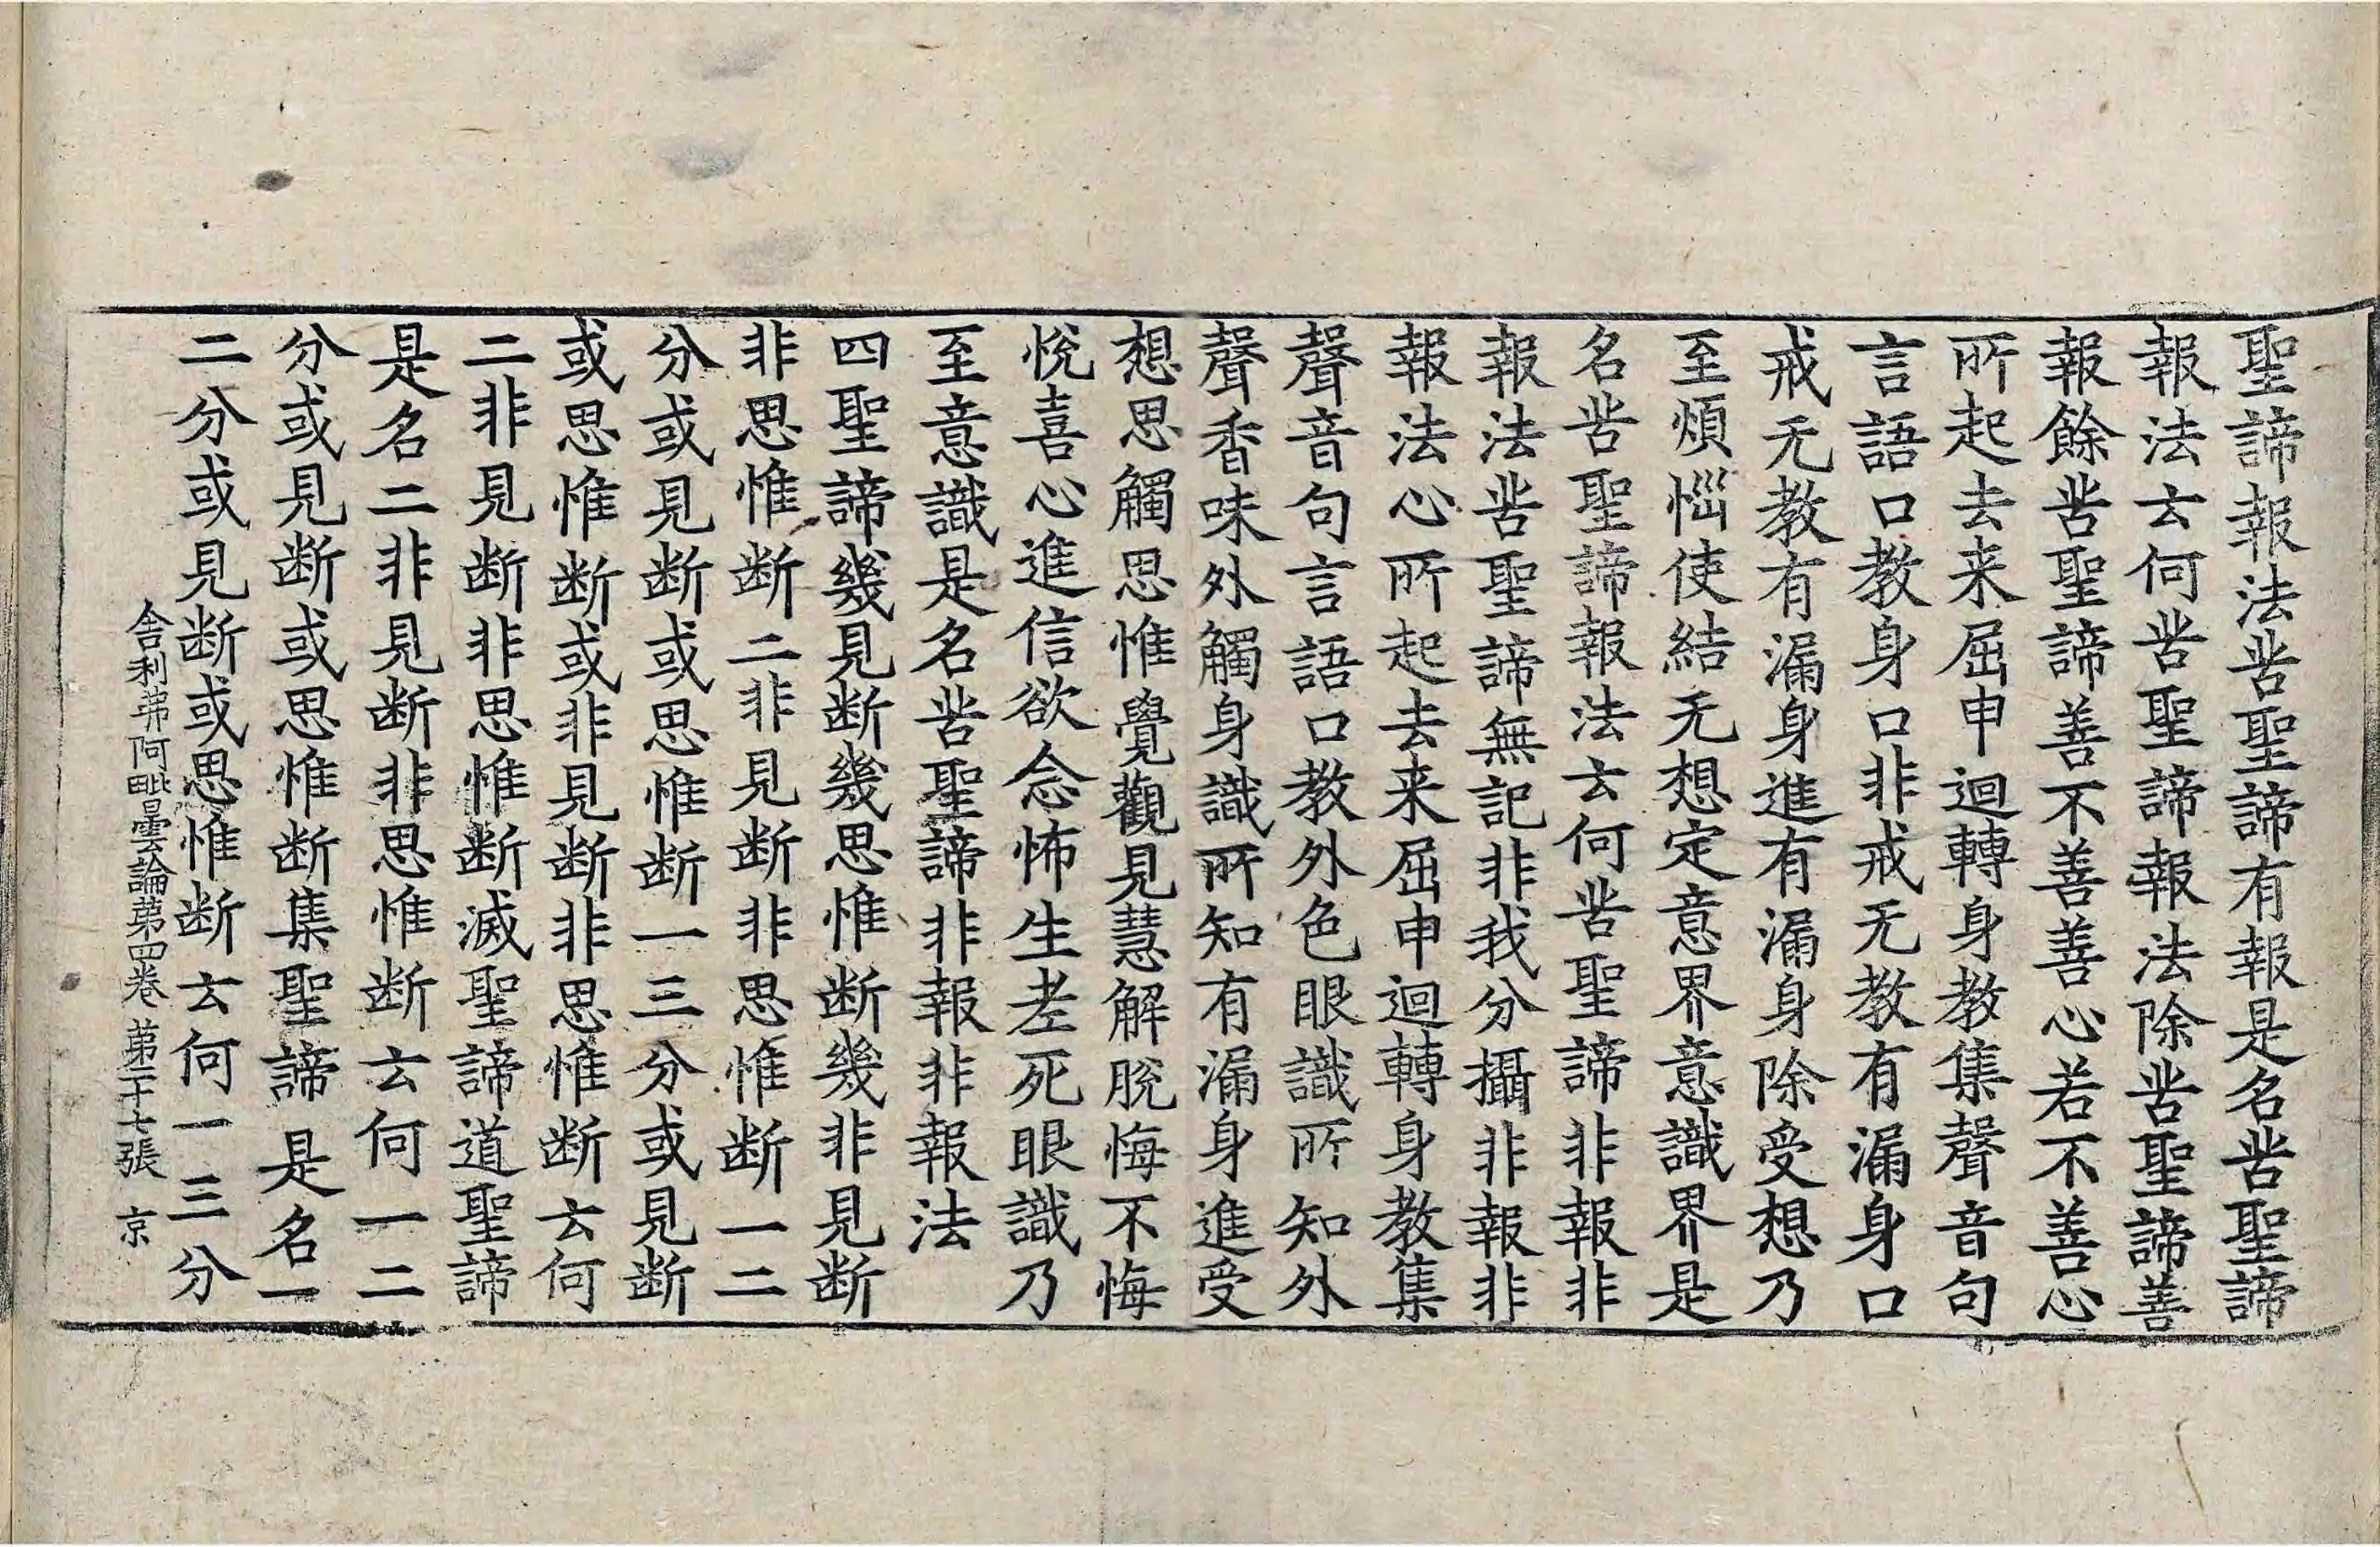 聖諦報法苦聖諦有報是名苦聖諦
報法云何苦聖諦報法除苦聖諦善
報餘苦聖諦善不善善心若不善心
所起去来屈申迴轉身教集聲音句
言語口教身口非戒无教有漏身口
戒无教有漏身進有漏身除受想乃
至煩惱使結无想定意界意識界是
名苦聖諦報法云何苦聖諦非報非
報法苦聖諦無記非我分攝非報非
報法心所起去来屈申迴轉身教集
聲音句言語口教外色眼識所知外
聲香味外觸身識所知有漏身進受
想思觸思惟覺觀見慧解脫悔不悔
悅喜心進信欲念怖生老死眼識乃
至意識是名苦聖諦非報非報法
四聖諦幾見断幾思惟断幾非見断
非思惟断二非見断非思惟断一二
分或見断或思惟断一三分或見断
或思惟断或非見断非思惟断云何
二非見断非思惟断滅聖諦道聖諦
是名二非見断非思惟断云何一二
分或見断或思惟断集聖諦是名一
二分或見断或思惟断云何一三分
舍利弗阿毗曇論苐四卷 苐二十七張 京